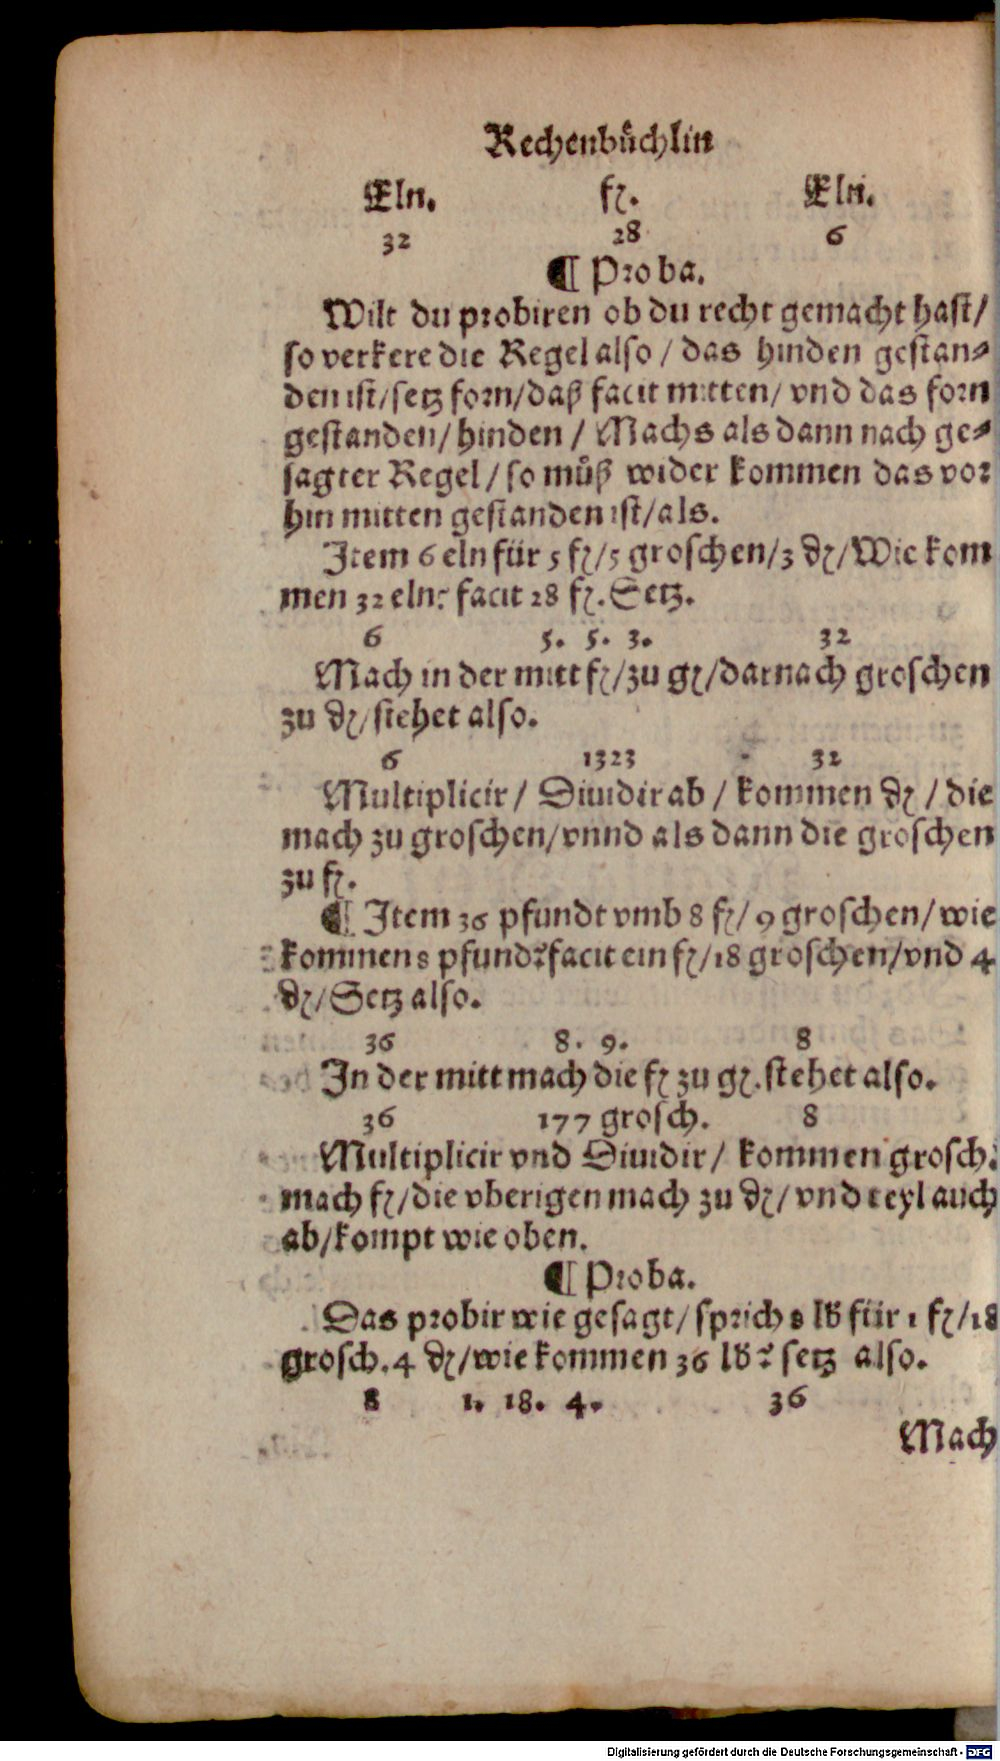 Rechenbuͤchlin
Eln. fl. Eln.
32 28 6
¶ Proba.
Wilt du probiren ob du recht gemacht hast/
so verkere die Regel also / das hinden gestan⸗
den ist/setz forn/daß facit mitten/ vnd das forn
gestanden/ hinden / Machs als dann nach ge⸗
sagter Regel / so muͤß wider kommen das vor
hin mitten gestanden ist/als.
Item 6 eln für 5 fl/5 groschen/3 ₰/Wie kom
men 32 eln? facit 28 fl. Setz.
6 5. 5. 3. 32
Mach in der mitt fl/zu gl/darnach groschen
zu ₰/stehet also.
6 1323 32
Multiplicir / Diuidir ab / kommen ₰ / die
mach zu groschen/vnnd als dann die groschen
zu fl.
¶ Item 36 pfundt vmb 8 fl/ 9 groschen/ wie
kommen 8 pfund? facit ein fl/18 groschen/vnd 4
₰/ Setz also.
36 8. 9. 8
In der mitt mach die fl zu gl. stehet also.
36 177 grosch. 8
Multiplicir vnd Diuidir/ kommen grosch.
mach fl/die vberigen mach zu ₰/ vnd teyl auch
ab/kompt wie oben.
¶ Proba.
Das probir wie gesagt/ sprich 8 lb für 1 fl/18
grosch. 4 ₰/wie kommen 36 lb? setz also.
8 1. 18. 4. 36
Mach
Digitalisierung gefördert durch die Deutsche Forschungsgemeinschaft - DFG